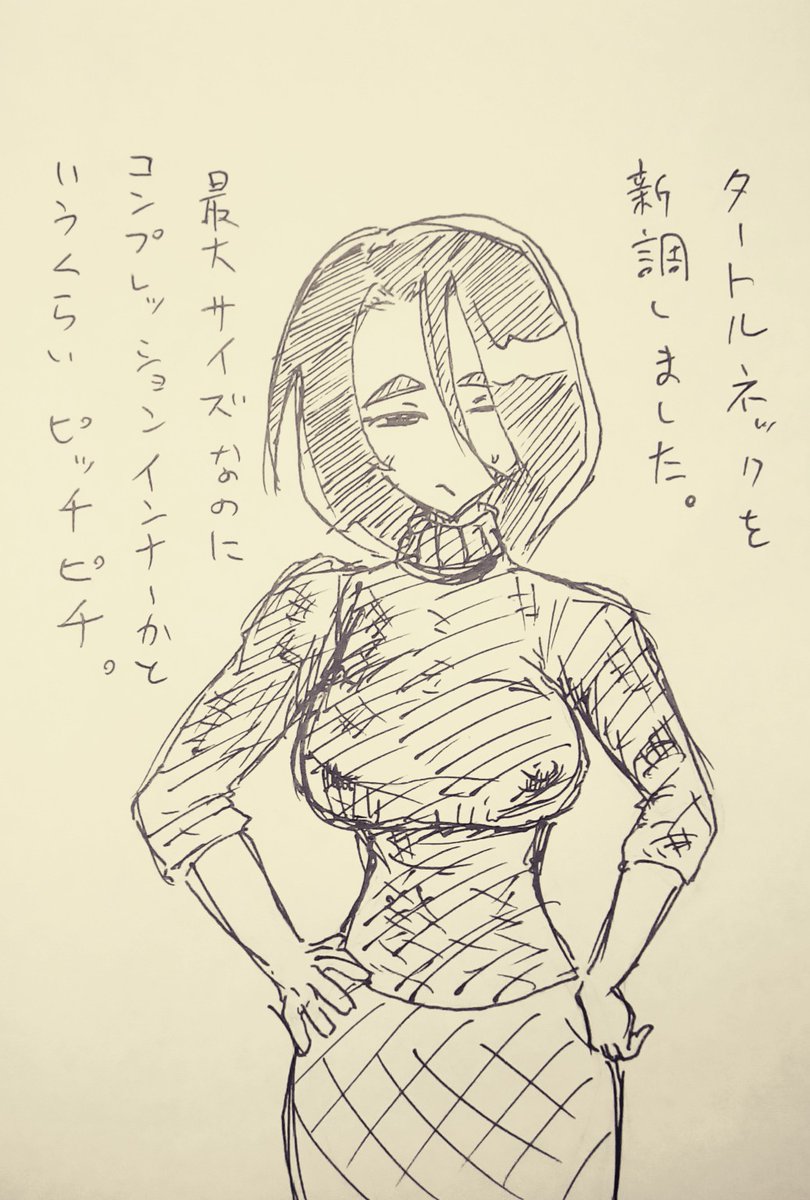 タートルネックを
新調しました。
最大サイズなのに
コンプレッションインナーかと
いうくらいピッチピチ。